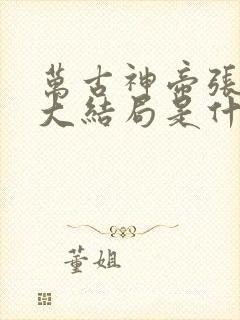 萬古神帝張
大結局是什
董姐